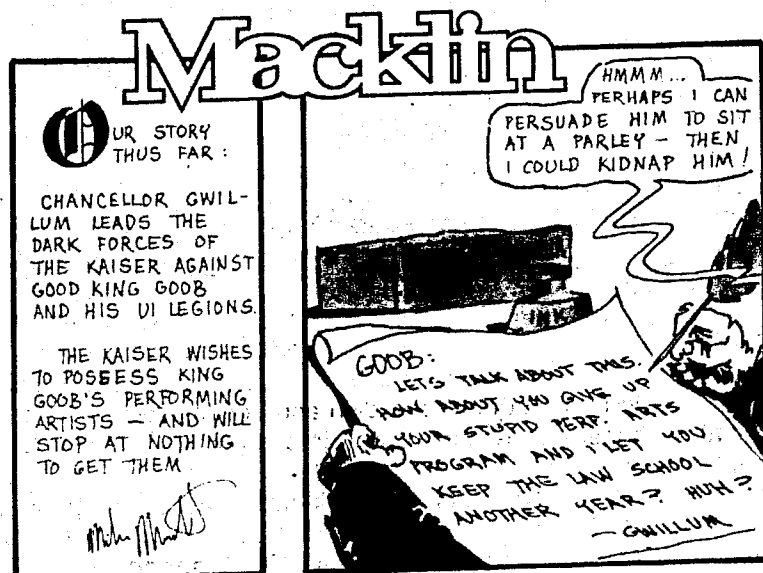 Macklin
OUR STORY
THUS FAR:
CHANCELLOR GWIL-
LUM LEADS THE
DARK FORCES OF
THE KAISER AGAINST
GOOD KING GOOB
AND HIS UI LEGIONS.
THE KAISER WISHES
TO POSSESS KING
GOOB'S PERFORMING
ARTISTS — AND WILL
STOP AT NOTHING
TO GET THEM
HMMM...
PERHAPS I CAN
PERSUADE HIM TO SIT
AT A PARLEY — THEN
I COULD KIDNAP HIM!
INK
GOOB:
LETS TALK ABOUT THIS.
HOW ABOUT YOU GIVE UP
YOUR STUPID PERF. ARTS
PROGRAM AND I LET YOU
KEEP THE LAW SCHOOL
ANOTHER YEAR? HUH?
— GWILLUM